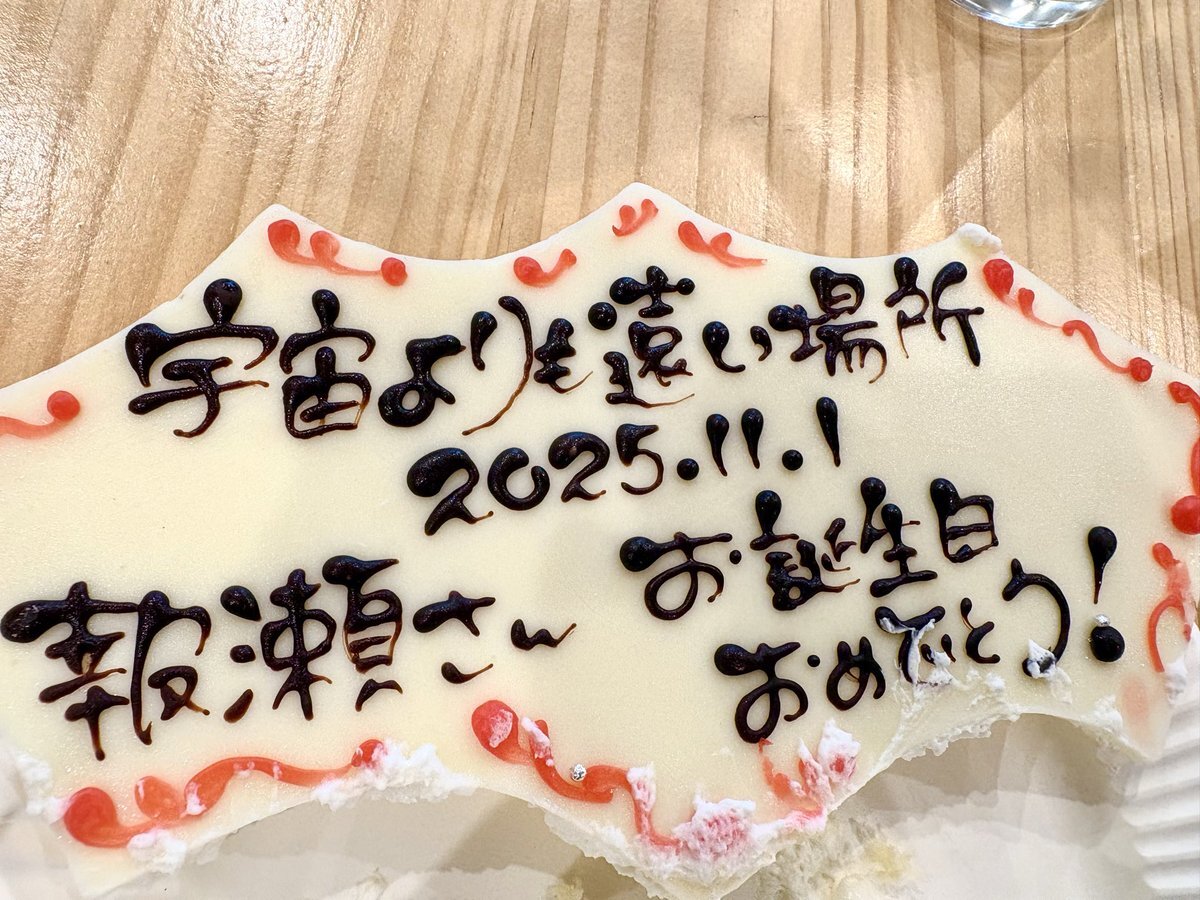 宇宙よりも遠い場所
2025.11.1
報瀬さん
お誕生日
おめでとう!